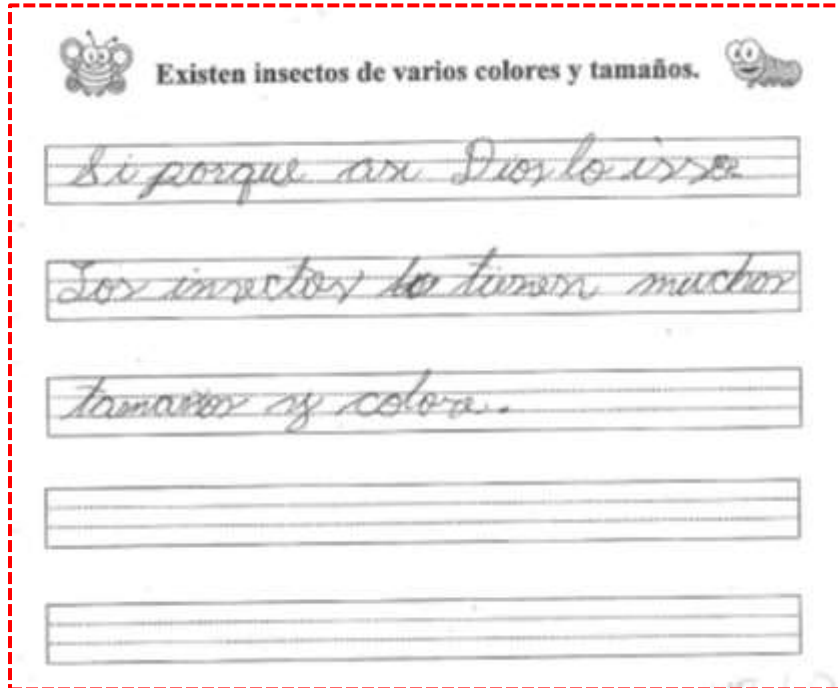 Existen insectos de varios colores y tamaños.
Si porque asi Dios lo isso
Los insectos lo tienen muchos
tamanos y colore.